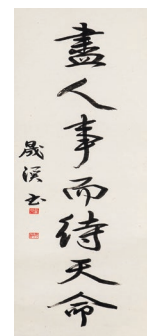 盡人事而待天命
晟溪書